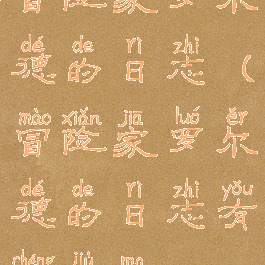 冒险家罗尔
dé de rì zhì
德的日志（
mào xiǎn jiā luó ěr
冒险家罗尔
dé de rì zhì yǒu
德的日志有
chéng jiù ma